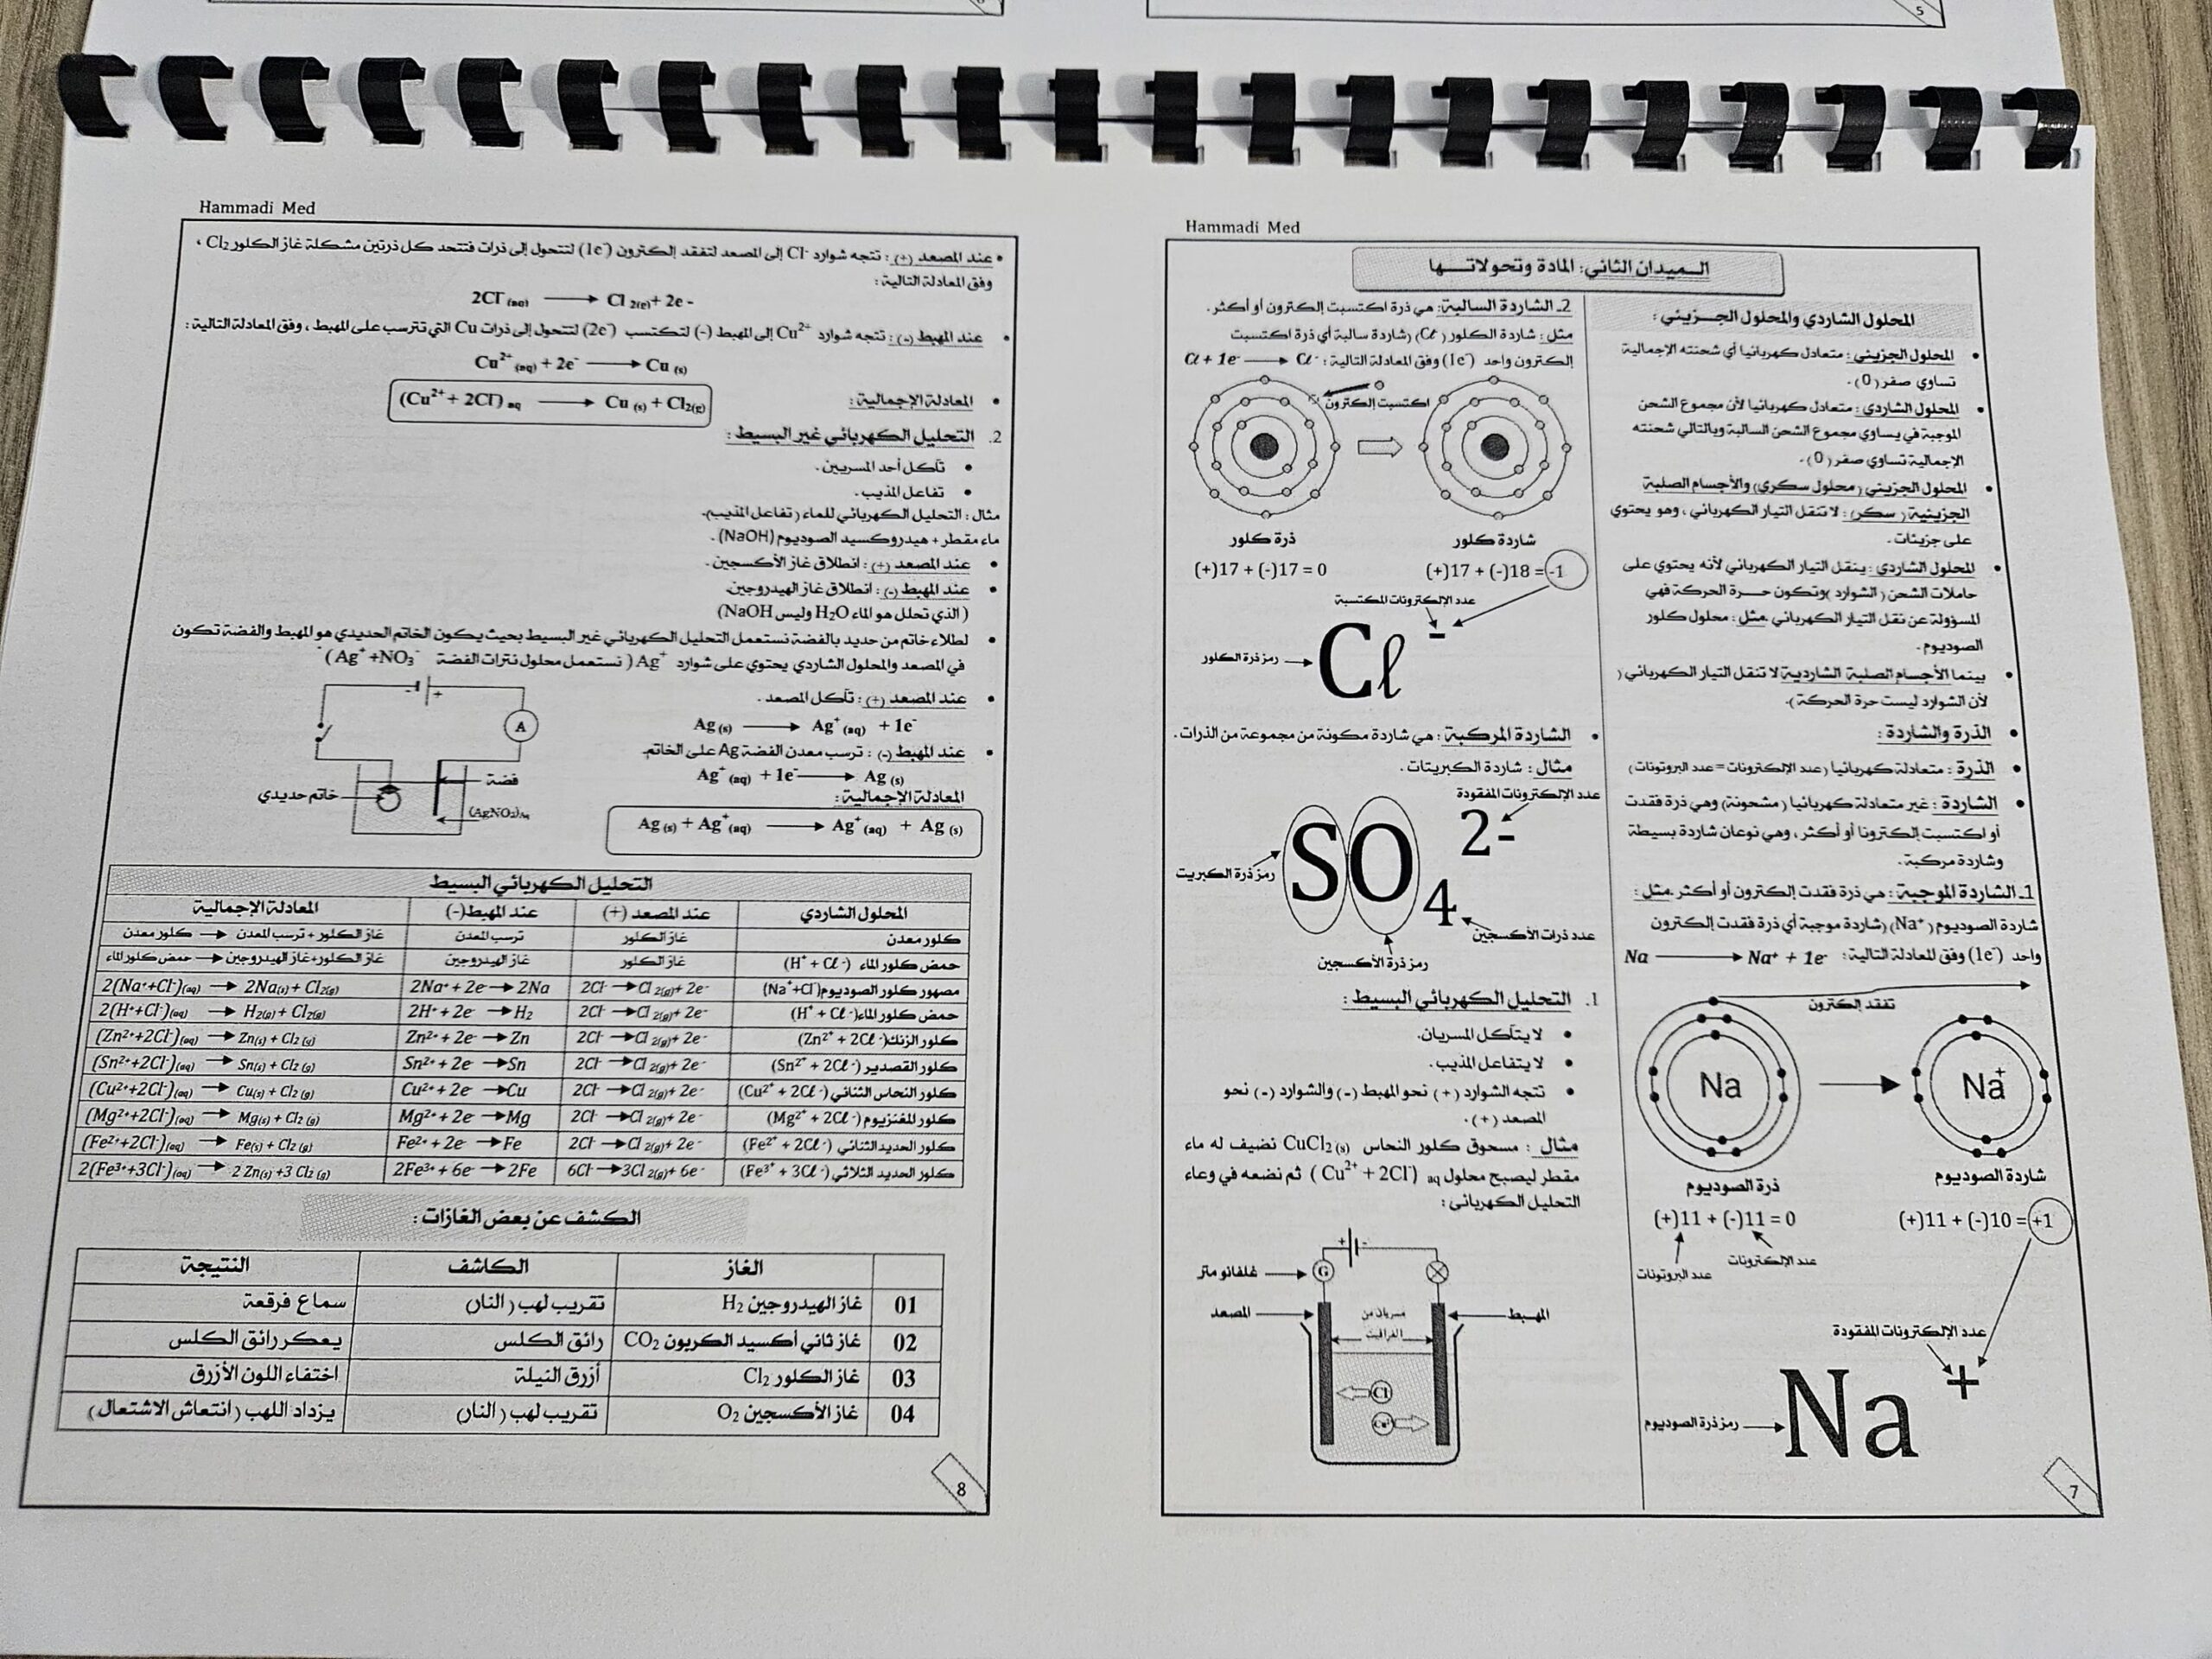 5
Hammadi Med
الـميدان الثاني: المادة وتحولاتـــها
المحلول الشاردي والمحلول الجـزيئي :
• المحلول الجزيئي : متعادل كهربائيا أي شحنته الإجمالية
تساوي صفر (0) .
• المحلول الشاردي : متعادل كهربائيا لأن مجموع الشحن
الموجبة في يساوي مجموع الشحن السالبة وبالتالي شحنته
الإجمالية تساوي صفر (0) .
• المحلول الجزيئي ( محلول سكري) والأجسام الصلبة
الجزيئية ( سكر) : لا تنقل التيار الكهربائي ، وهو يحتوي
على جزيئات .
• المحلول الشاردي : ينقل التيار الكهربائي لأنه يحتوي على
حاملات الشحن ( الشوارد )وتكون حـرة الحركة فهي
المسؤولة عن نقل التيار الكهربائي .مثل : محلول كلور
الصوديوم .
• بينما الأجسام الصلبة الشاردية لا تنقل التيار الكهربائي (
لأن الشوارد ليست حرة الحركة ) .
• الذرة والشاردة :
• الذرة : متعادلة كهربائيا ( عدد الإلكترونات = عدد البروتونات )
• الشاردة : غير متعادلة كهربائيا ( مشحونة ) وهي ذرة فقدت
أو اكتسبت إلكترونا أو أكثر ، وهي نوعان شاردة بسيطة
وشاردة مركبة .
1ـ الشاردة الموجبة : هي ذرة فقدت إلكترون أو أكثر .مثل :
شاردة الصوديوم ( Na⁺ ) شاردة موجبة أي ذرة فقدت إلكترون
واحد (1e⁻) وفق المعادلة التالية : Na ⟶ Na⁺ + 1e⁻
تفقد إلكترون
Na
Na⁺
ذرة الصوديوم
شاردة الصوديوم
(+)11 + (-)11 = 0
(+)11 + (-)10 = +1
عدد البروتونات
عدد الإلكترونات
عدد الإلكترونات المفقودة
رمز ذرة الصوديوم
Na⁺
7
2ـ الشاردة السالبة : هي ذرة اكتسبت إلكترون أو أكثر .
مثل : شاردة الكلور ( Cℓ⁻ ) شاردة سالبة أي ذرة اكتسبت
إلكترون واحد (1e⁻) وفق المعادلة التالية : Cℓ + 1e⁻ ⟶ Cℓ⁻
اكتسبت إلكترون
ذرة كلور
شاردة كلور
(+)17 + (-)17 = 0
(+)17 + (-)18 = -1
عدد الإلكترونات المكتسبة
رمز ذرة الكلور
Cℓ⁻
• الشاردة المركبة : هي شاردة مكونة من مجموعة من الذرات .
مثال : شاردة الكبريتات .
عدد الإلكترونات المفقودة
SO₄²⁻
رمز ذرة الكبريت
عدد ذرات الأكسجين
رمز ذرة الأكسجين
1. التحليل الكهربائي البسيط :
• لا يتآكل المسريان.
• لا يتفاعل المذيب .
• تتجه الشوارد (+) نحو المهبط (-) والشوارد (-) نحو
المصعد (+) .
مثال : مسحوق كلور النحاس CuCl₂ (s) نضيف له ماء
مقطر ليصبح محلول (Cu²⁺ + 2Cl⁻) aq ثم نضعه في وعاء
التحليل الكهربائي :
+ -
غلفانو متر
G
المصعد
مسريان من
الغرافيت
المهبط
Cl⁻
Cu²⁺
Hammadi Med
• عند المصعد (+) : تتجه شوارد Cl⁻ إلى المصعد لتفقد إلكترون (1e⁻) لتتحول إلى ذرات فتتحد كل ذرتين مشكلة غاز الكلور Cl₂ ،
وفق المعادلة التالية :
2Cl⁻ (aq) ⟶ Cl 2(g) + 2e -
• عند المهبط (-) : تتجه شوارد Cu²⁺ إلى المهبط (-) لتكتسب (2e⁻) لتتحول إلى ذرات Cu التي تترسب على المهبط ، وفق المعادلة التالية :
Cu²⁺ (aq) + 2e⁻ ⟶ Cu (s)
• المعادلة الإجمالية :
(Cu²⁺ + 2Cl⁻) aq ⟶ Cu (s) + Cl2(g)
2. التحليل الكهربائي غير البسيط :
• تآكل أحد المسريين .
• تفاعل المذيب .
مثال : التحليل الكهربائي للماء ( تفاعل المذيب).
ماء مقطر + هيدروكسيد الصوديوم (NaOH) .
• عند المصعد (+) : انطلاق غاز الأكسجين .
• عند المهبط (-) : انطلاق غاز الهيدروجين.
( الذي تحلل هو الماء H₂O وليس NaOH)
• لطلاء خاتم من حديد بالفضة نستعمل التحليل الكهربائي غير البسيط بحيث يكون الخاتم الحديدي هو المهبط والفضة تكون
في المصعد والمحلول الشاردي يحتوي على شوارد Ag⁺ ( نستعمل محلول نترات الفضة (Ag⁺ +NO₃⁻
• عند المصعد (+) : تآكل المصعد .
Ag (s) ⟶ Ag⁺ (aq) + 1e⁻
• عند المهبط (-) : ترسب معدن الفضة Ag على الخاتم.
Ag⁺ (aq) + 1e⁻ ⟶ Ag (s)
المعادلة الإجمالية :
Ag (s) + Ag⁺ (aq) ⟶ Ag⁺ (aq) + Ag (s)
- +
A
فضة
خاتم حديدي
(AgNO₂)Aq
التحليل الكهربائي البسيط
المحلول الشاردي عند المصعد (+) عند المهبط(-) المعادلة الإجمالية
كلور معدن غاز الكلور ترسب المعدن كلور معدن ⟶ غاز الكلور + ترسب المعدن
حمض كلور الماء (H⁺ + Cℓ⁻) غاز الكلور غاز الهيدروجين حمض كلور الماء ⟶ غاز الكلور+غاز الهيدروجين
مصهور كلور الصوديوم (Na⁺+Cl⁻) 2Cl⁻ ⟶ Cl 2(g)+ 2e⁻ 2Na⁺ + 2e⁻ ⟶ 2Na 2(Na⁺+Cl⁻)(aq) ⟶ 2Na(s) + Cl2(g)
حمض كلور الماء (H⁺ + Cℓ⁻) 2Cl⁻ ⟶ Cl 2(g)+ 2e⁻ 2H⁺ + 2e⁻ ⟶ H₂ 2(H⁺+Cl⁻)(aq) ⟶ H2(g) + Cl2(g)
كلور الزنك (Zn²⁺ + 2Cℓ⁻) 2Cl⁻ ⟶ Cl 2(g)+ 2e⁻ Zn²⁺ + 2e⁻ ⟶ Zn (Zn²⁺+2Cl⁻)(aq) ⟶ Zn(s) + Cl2 (g)
كلور القصدير (Sn²⁺ + 2Cℓ⁻) 2Cl⁻ ⟶ Cl 2(g)+ 2e⁻ Sn²⁺ + 2e⁻ ⟶ Sn (Sn²⁺+2Cl⁻)(aq) ⟶ Sn(s) + Cl2 (g)
كلور النحاس الثنائي (Cu²⁺ + 2Cℓ⁻) 2Cl⁻ ⟶ Cl 2(g)+ 2e⁻ Cu²⁺ + 2e⁻ ⟶ Cu (Cu²⁺+2Cl⁻)(aq) ⟶ Cu(s) + Cl2 (g)
كلور المغنزيوم (Mg²⁺ + 2Cℓ⁻) 2Cl⁻ ⟶ Cl 2(g)+ 2e⁻ Mg²⁺ + 2e⁻ ⟶ Mg (Mg²⁺+2Cl⁻)(aq) ⟶ Mg(s) + Cl2 (g)
كلور الحديد الثنائي (Fe²⁺ + 2Cℓ⁻) 2Cl⁻ ⟶ Cl 2(g)+ 2e⁻ Fe²⁺ + 2e⁻ ⟶ Fe (Fe²⁺+2Cl⁻)(aq) ⟶ Fe(s) + Cl2 (g)
كلور الحديد الثلاثي (Fe³⁺ + 3Cℓ⁻) 6Cl⁻ ⟶ 3Cl 2(g)+ 6e⁻ 2Fe³⁺ + 6e⁻ ⟶ 2Fe 2(Fe³⁺+3Cl⁻)(aq) ⟶ 2 Zn(s) +3 Cl2 (g)
الكشف عن بعض الغازات :
الغاز الكاشف النتيجة
01 غاز الهيدروجين H₂ تقريب لهب ( النار) سماع فرقعة
02 غاز ثاني أكسيد الكربون CO₂ رائق الكلس يعكر رائق الكلس
03 غاز الكلور Cl₂ أزرق النيلة اختفاء اللون الأزرق
04 غاز الأكسجين O₂ تقريب لهب ( النار) يزداد اللهب ( انتعاش الاشتعال )
8